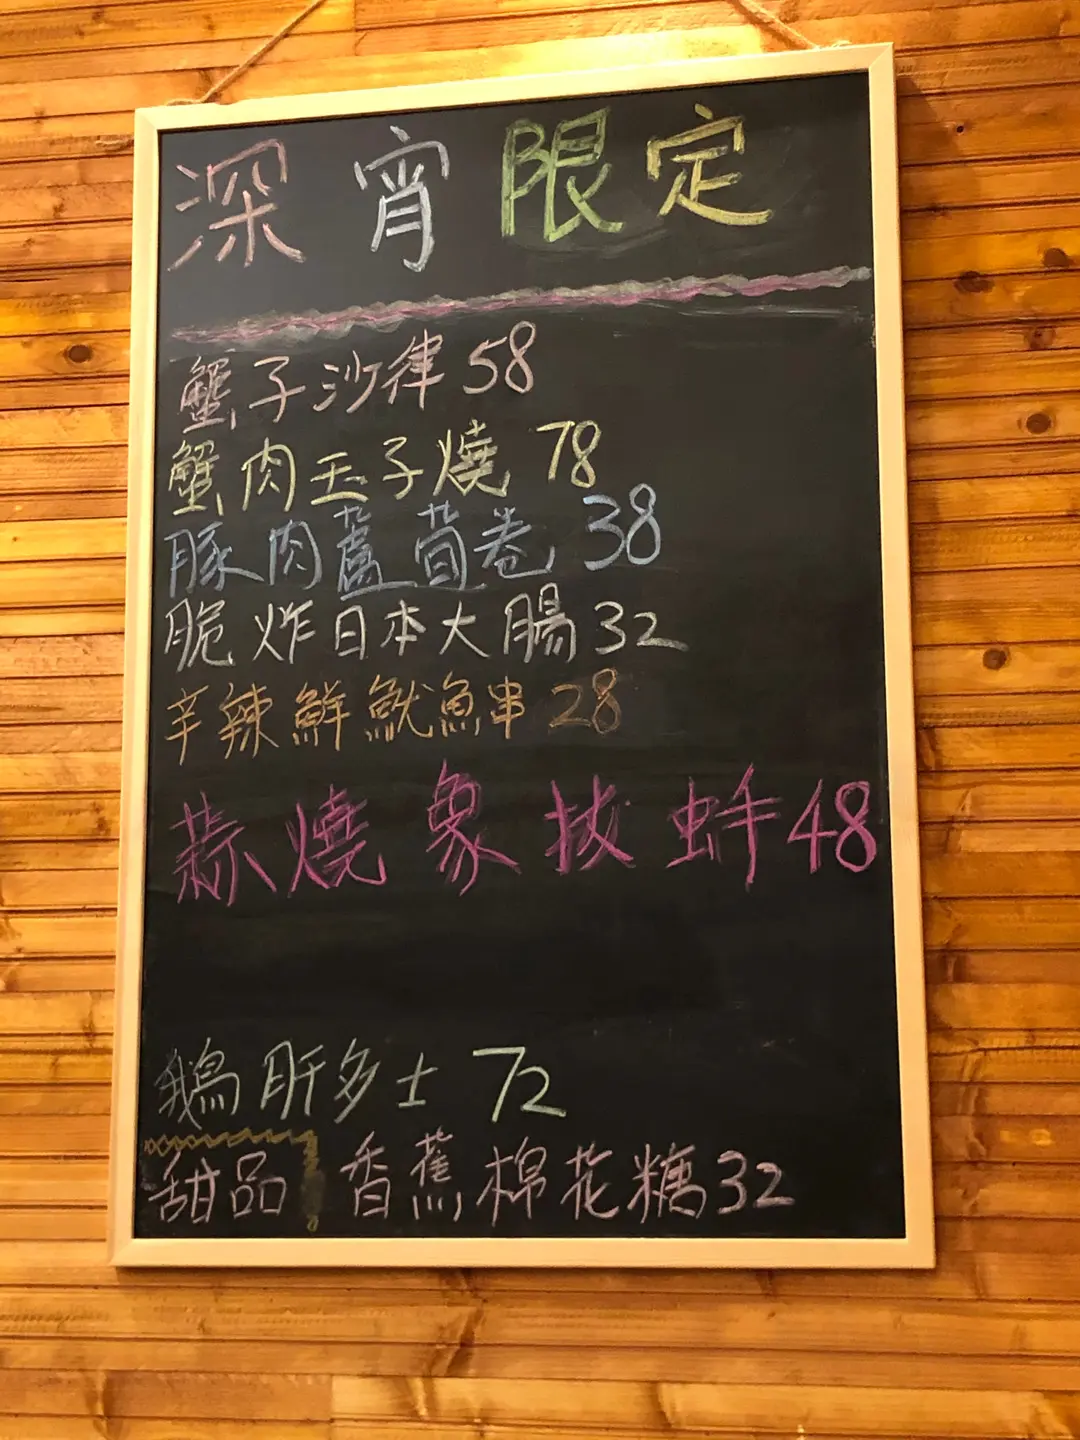 深宵限定
蟹子沙律 58
蟹肉玉子燒 78
豚肉蘆荀卷 38
脆炸日本大腸 32
辛辣鮮魷魚串 28
蒜燒象拔蚌 48
鵝肝多士 72
甜品 香蕉棉花糖 32